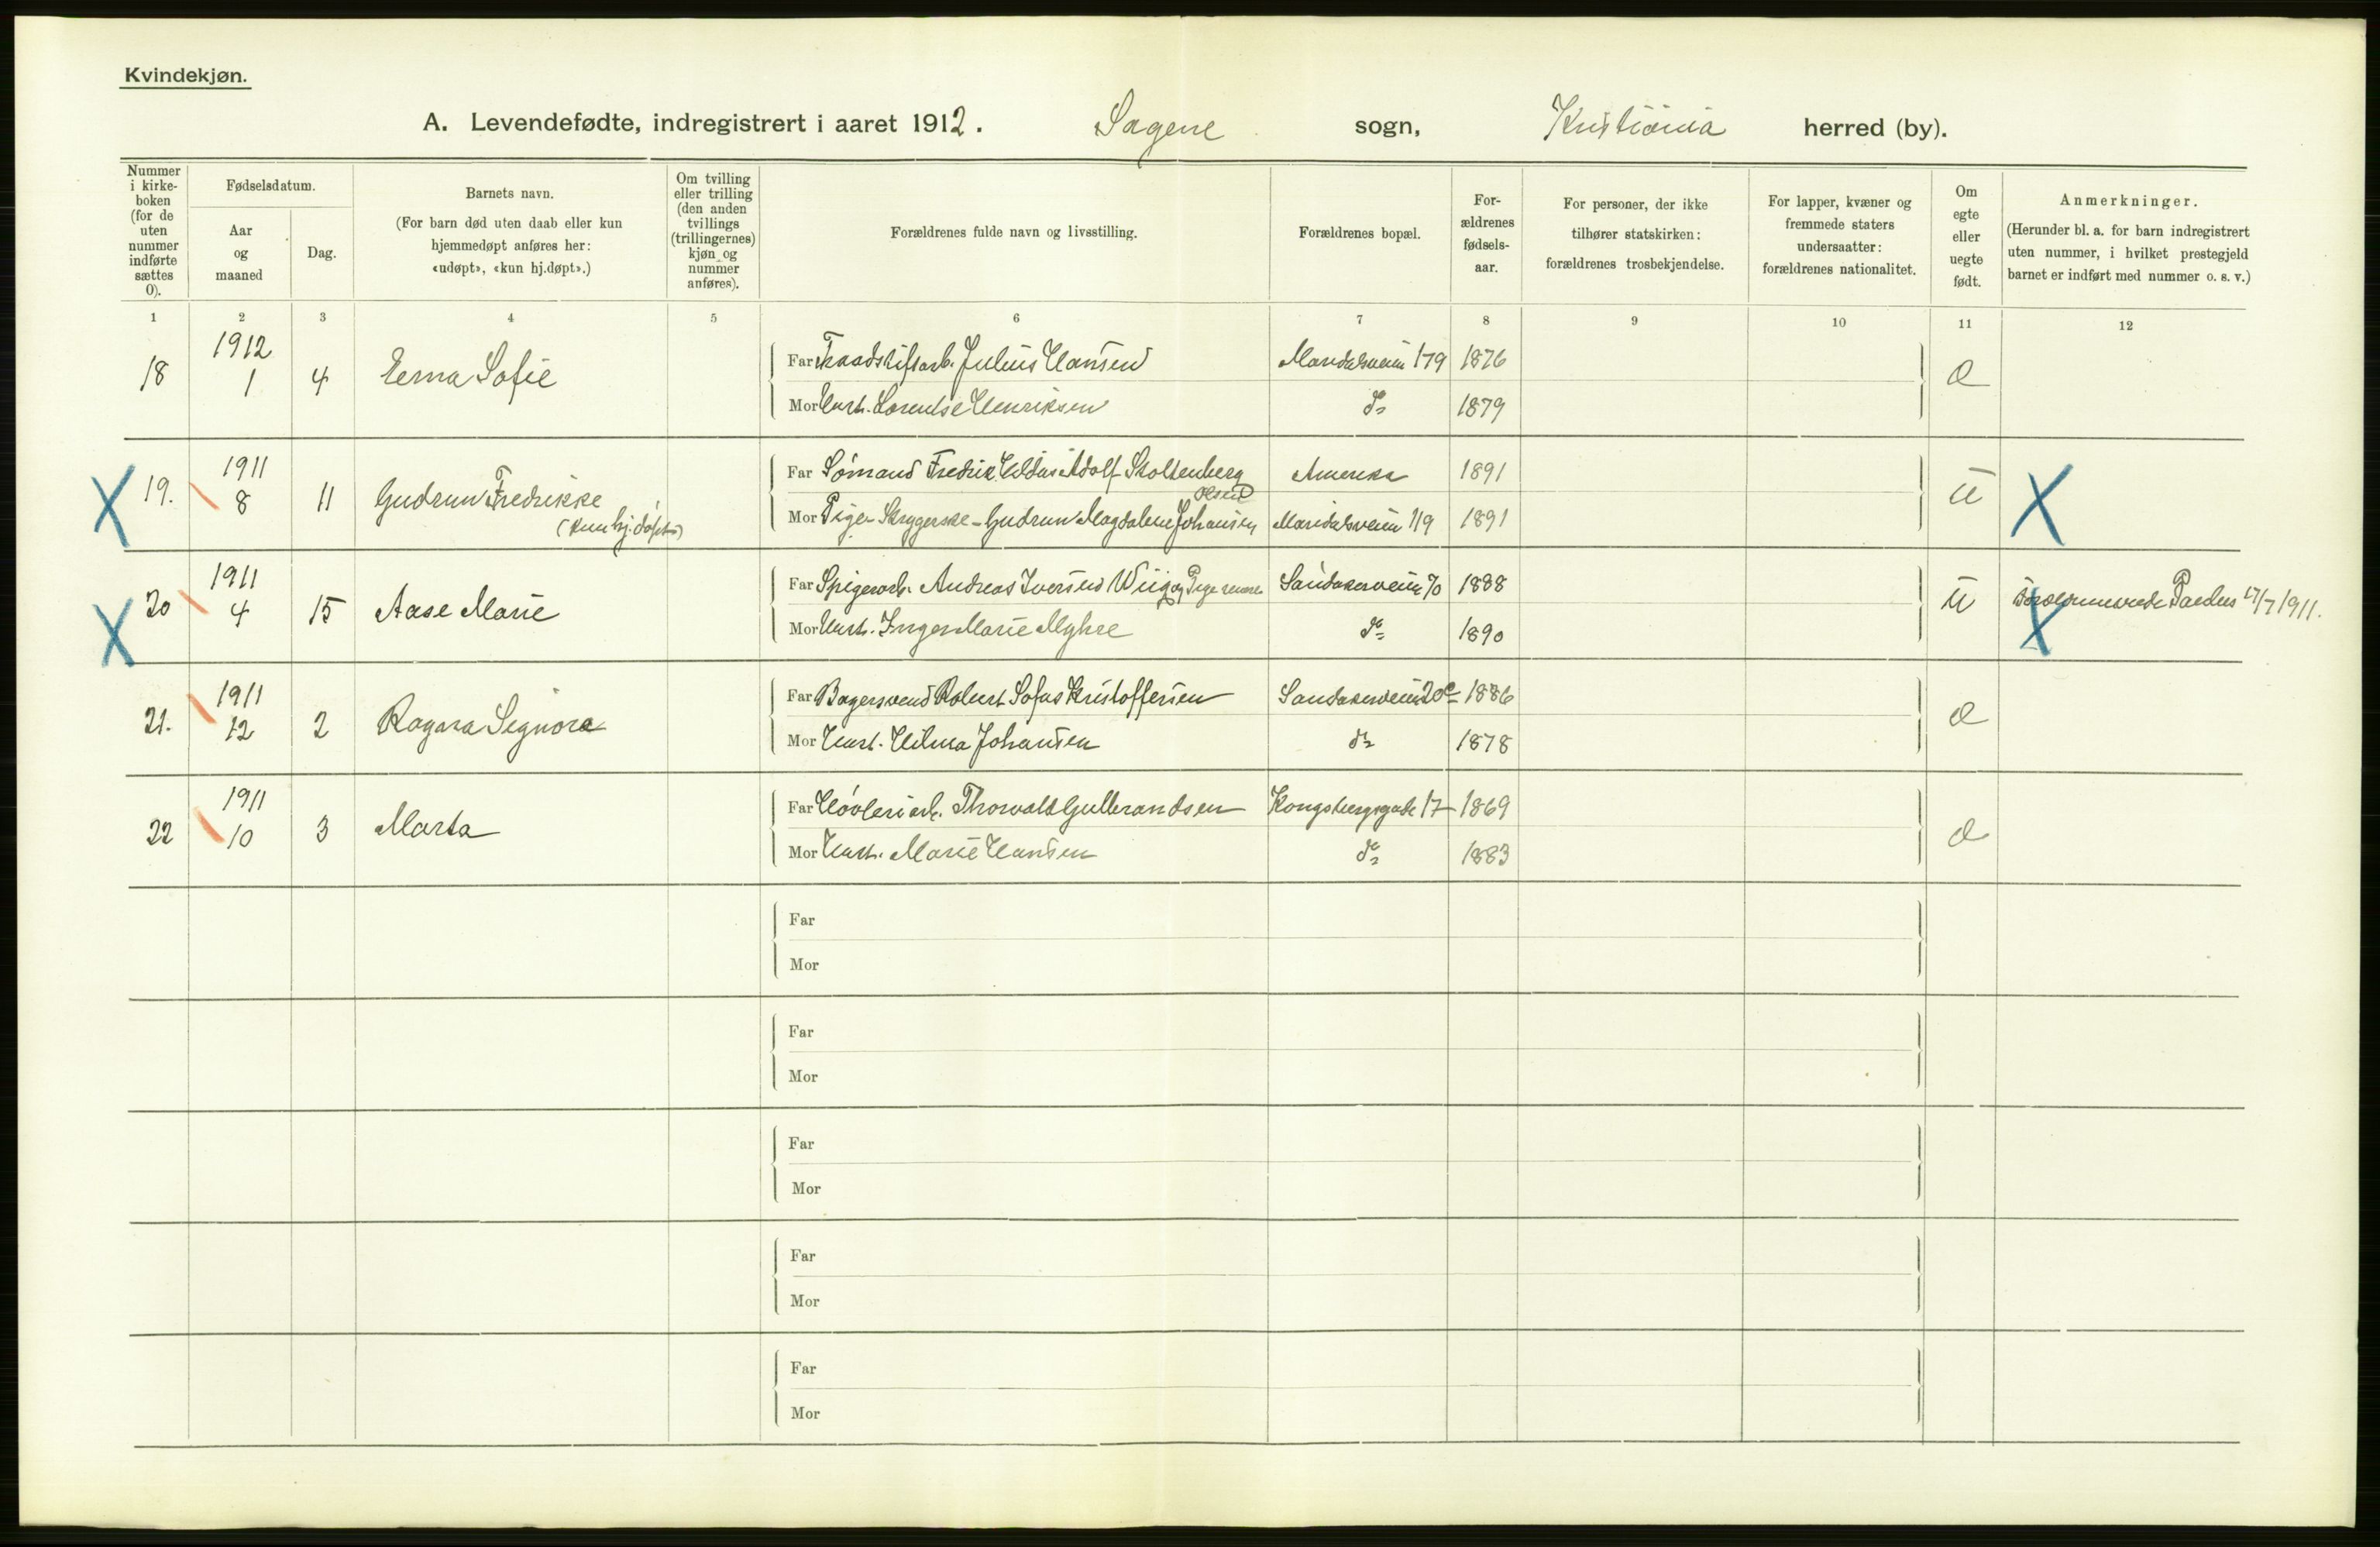 Kvindekjøn.
A. Levendefødte, indregistrert i aaret 1912. Sagene sogn, Kristiania herred (by).
Nummer i kirke-boken (for de uten nummer indførte sættes 0).
Fødselsdatum.
Aar og maaned
Dag.
Barnets navn.
(For barn død uten daab eller kun hjemmedøpt anføres her: «udøpt», «kun hj.døpt».)
Om tvilling eller trilling (den anden tvillings (trillingernes) kjøn og nummer anføres).
Forældrenes fulde navn og livsstilling.
Forældrenes bopæl.
For-ældrenes fødsels-aar.
For personer, der ikke tilhører statskirken: forældrenes trosbekjendelse.
For lapper, kvæner og fremmede staters undersaatter: forældrenes nationalitet.
Om egte eller uegte født.
Anmerkninger.
(Herunder bl. a. for barn indregistrert uten nummer, i hvilket prestegjeld barnet er indført med nummer o. s. v.)
1 2 3 4 5 6 7 8 9 10 11 12
18 1912 1 4 Erna Sofie Far Julius Hansen Maridalsveien 179 1876
Mor Hust. Lorentse Henriksen do 1879
19. 1911 8 11 Gudrun Fredrikke (kun hj. døpt) Far Sømand Fredrik Adolf Stoltenberg Olsen Amerika 1891 u
Mor Pige Gudrun Magdalene Johansen Maridalsveien 119 1891
20 1911 4 15 Aase Marie Far Spigerarb. Andreas Iversen Wiig og Pige Sandakerveien 70 1888 u Paulus 17/7 1911.
Mor Hust. Inger Marie Myhre do 1890
21. 1911 12 2 Ragna Signora Far Bagersvend Robert Sofus Kristoffersen Sandakerveien 20c 1886
Mor Hust. Hilma Johansen do 1878
22 1911 10 3 Marta Far Høvleriarb. Thorvald Gulbrandsen Kongsbergsgade 17 1869
Mor Hust. Marie Hansen do 1883
Far
Mor
Far
Mor
Far
Mor
Far
Mor
Far
Mor